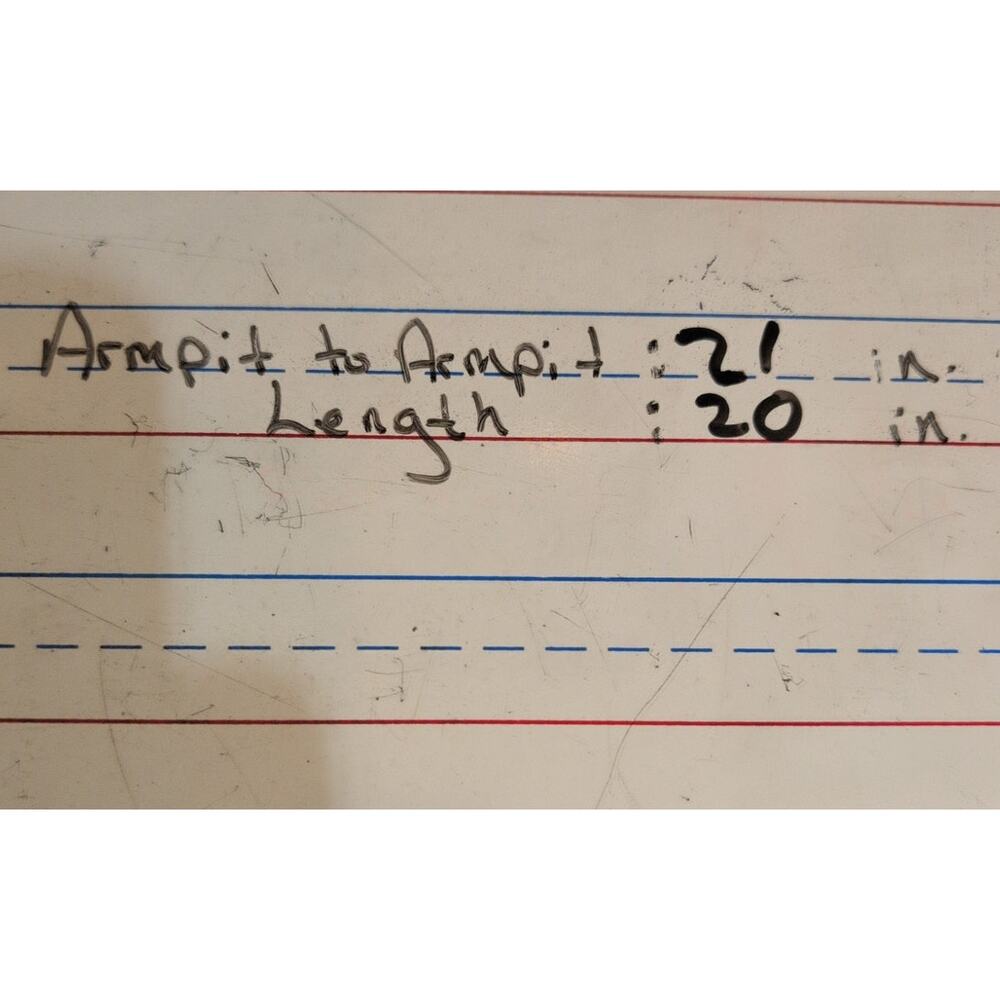 Armpit to Armpit : 21 in.
Length : 20 in.